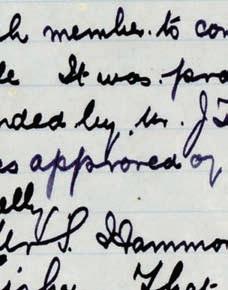 h member. to con
It was. pro
nded by. Mr. J T
s approved of
ally
S. Hammon
That